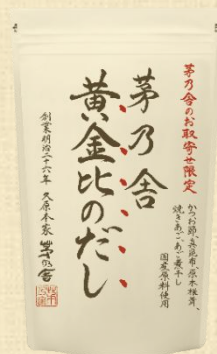 茅乃舎のお取寄せ限定
茅乃舎
黄金比のだし
かつお節、真昆布、原木椎茸、
焼きあご、あご煮干し
国産原料使用
創業明治二十六年 久原本家 茅乃舎